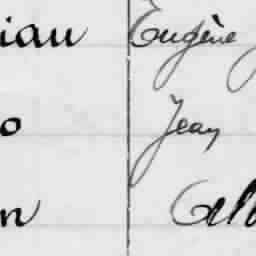 iau Eugène J
o Jean
n Alb